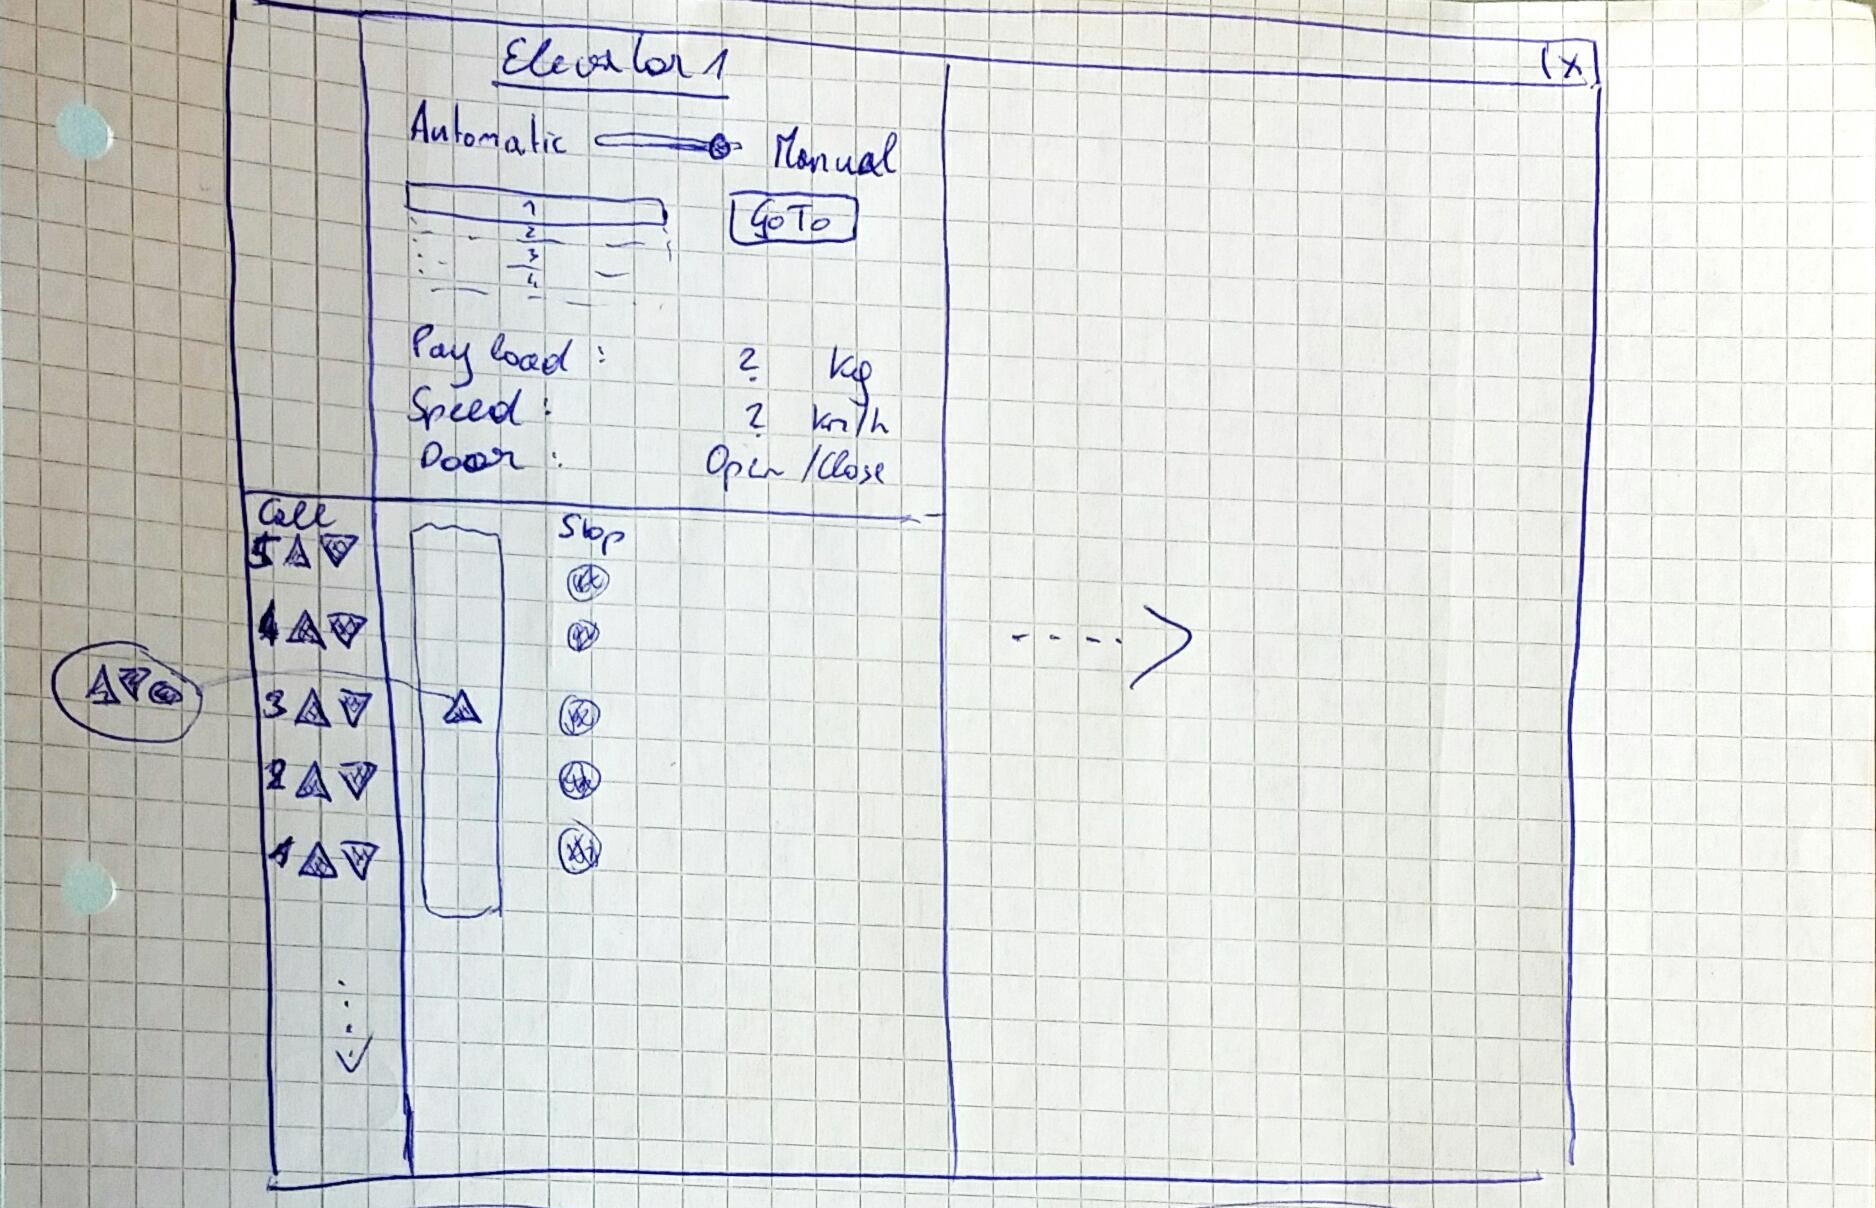 Elevator 1
X
Automatic Manual
1 GoTo
2
3
4
Payload : ? kg
Speed : ? km/h
Door : Open / Close
Call Stop
5
4
3
2
1